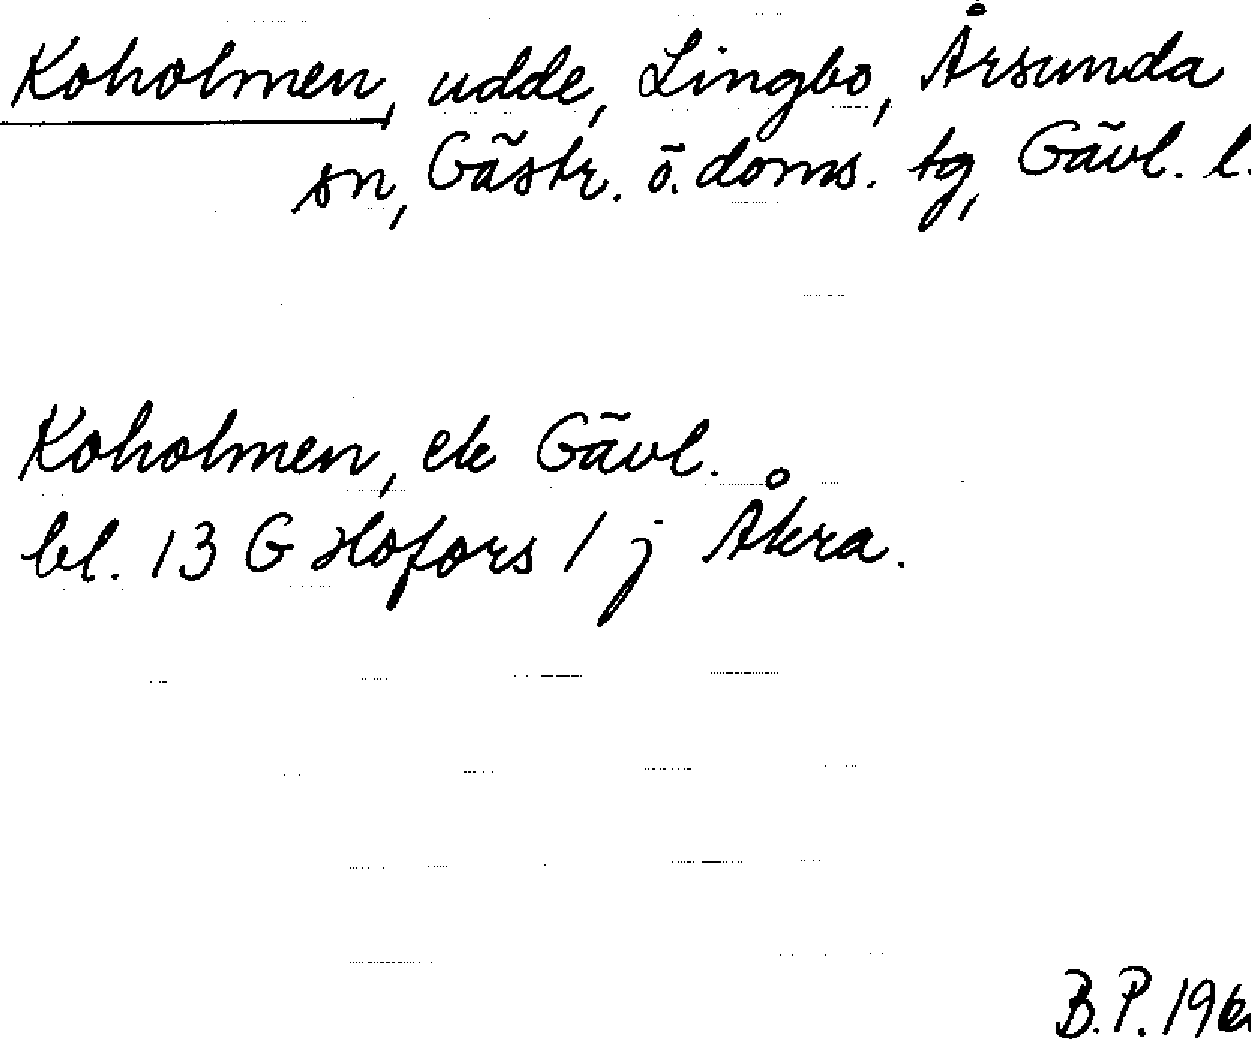 Koholmen, udde, Lingbo, Årsunda
sn, Gästr. ö. doms. tg, Gävl. l.
Koholmen, ek Gävl.
bl. 13 G Hofors 1 j Åkra.
B.P. 196